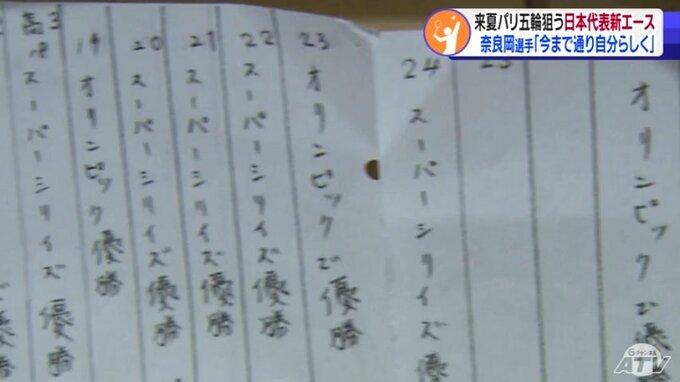 来夏パリ五輪狙う日本代表新エース
奈良岡選手「今まで通り自分らしく」
高3
18
スーパーシリイズ優勝
19
オリンピック優勝
20
スーパーシリイズ優勝
21
スーパーシリイズ優勝
22
スーパーシリイズ優勝
23
オリンピックで優勝
24
スーパーシリイズ優
25
オリンピックで優
6チャンネル
ATV